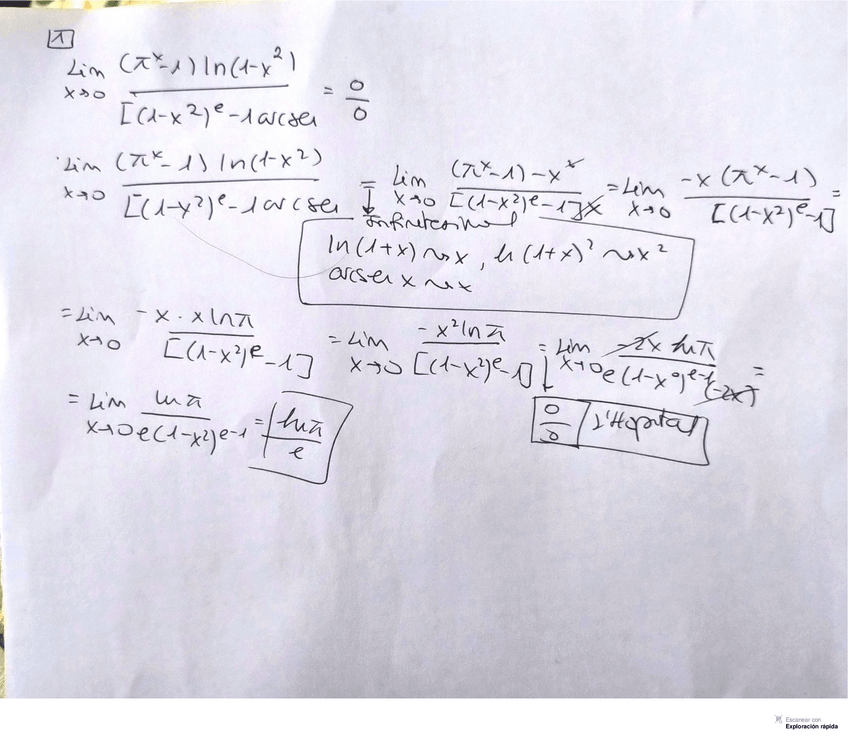 1
Lim x→0 (π^x-1) ln(1-x^2) / [(1-x^2)^e - 1 arcsen = 0/0
Lim x→0 (π^x-1) ln(1-x^2) / [(1-x^2)^e - 1 arcsen = Lim x→0 (π^x-1) - x^x / [(1-x^2)^e - 1] x = Lim x→0 -x (π^x-1) / [(1-x^2)^e - 1] =
Infinitesimal
ln(1+x) ~> x, ln(1+x)^2 ~> x^2
arcsen x ~> x
= Lim x→0 -x · x ln π / [(1-x^2)^e - 1] = Lim x→0 -x^2 ln π / [(1-x^2)^e - 1] = Lim x→0 -2x ln π / e(1-x^2)^e-1 (-2x) =
0/0 L'Hopital
= Lim x→0 ln π / e(1-x^2)^e-1 = ln π / e
Escanear con
Exploración rápida